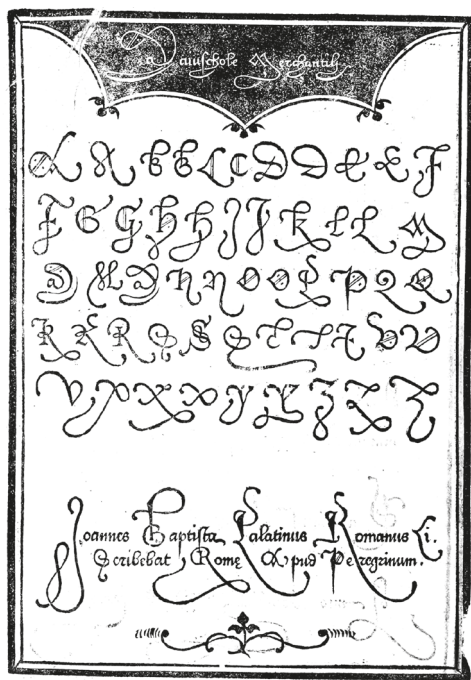 Maiuschole Merchantili
A A B B C C D D E E F
F G G H H I I K L L M
M M M N N O O P P Q Q
R R R S S S T T T V V
V X X X Y Y Z Z Z
Joannes Baptista Palatinus Romanus Ci.
Scribebat Romę Apud Peregrinum.